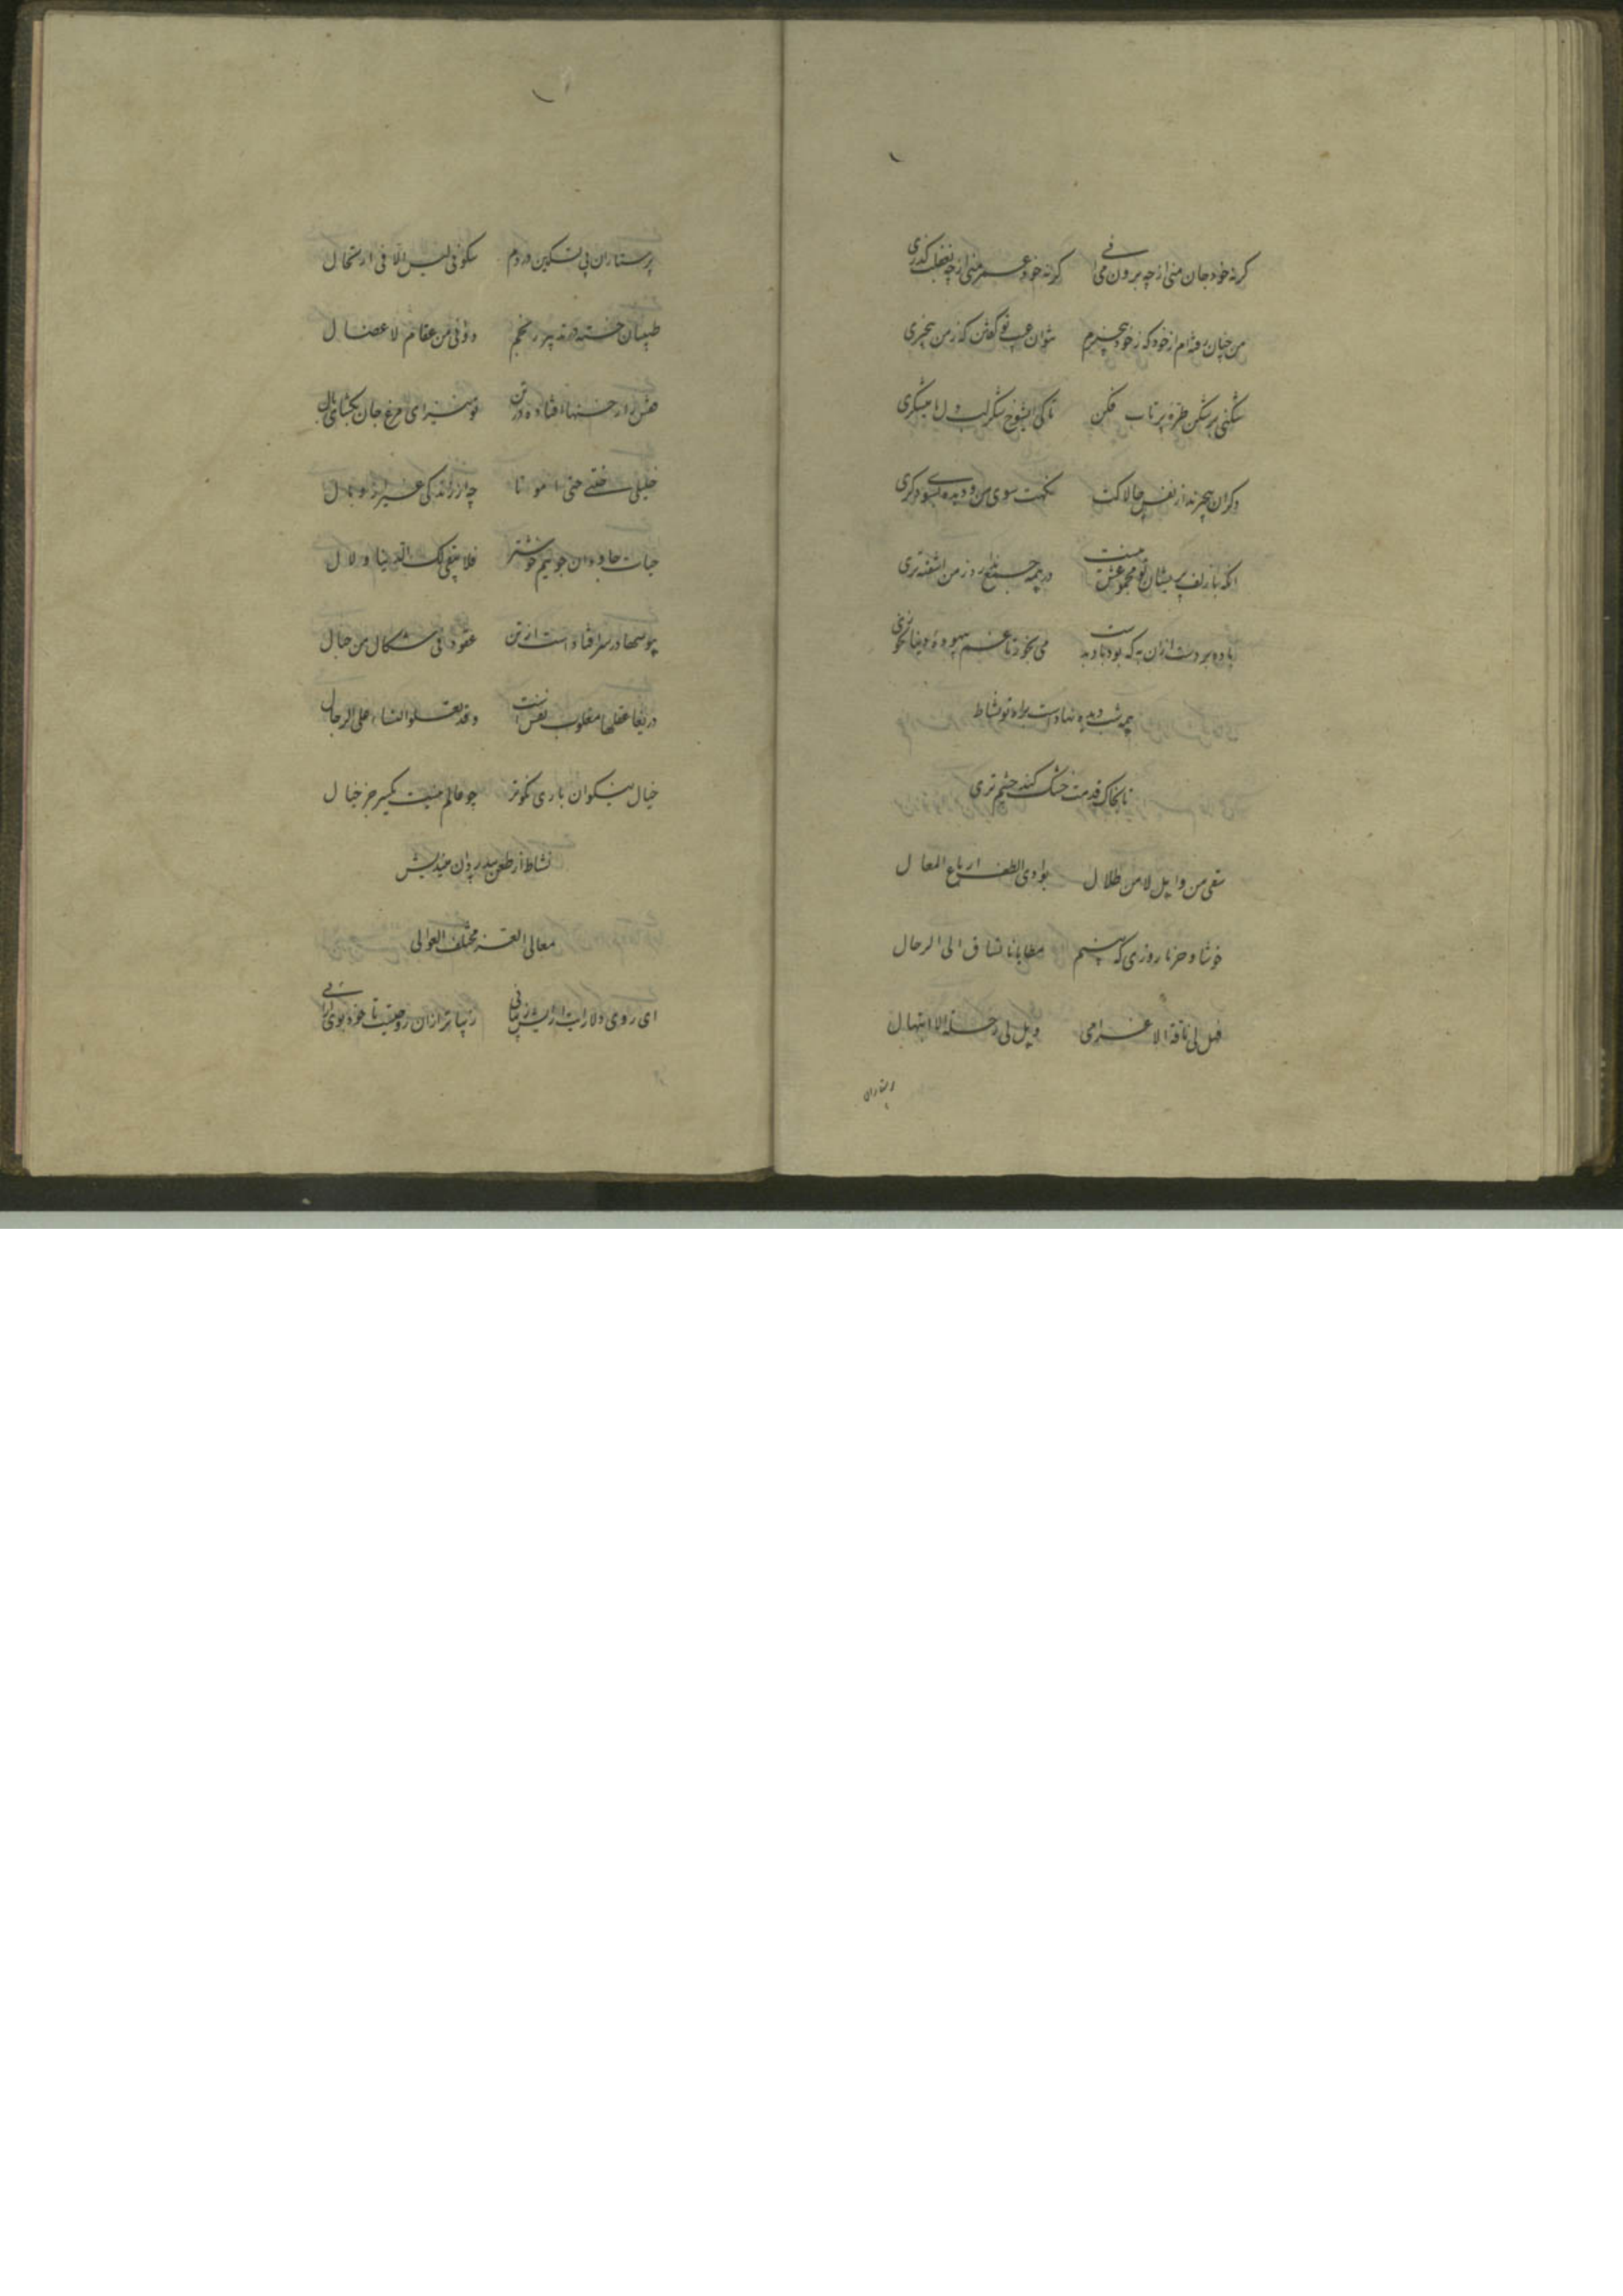 گر نه خود جان منی از چه برون می گر نه خود عمر منی از چه بغفلت گذری
من چنان رفته‌ام از خود که ز خود بیخبرم نتوان عیب تو گفتن که ز من بیخبری
شکنی بر شکن طره پر تاب فکن تا کی ایشوخ شکر لب دل ما میشکری
دگران بیخبرند از نفس چالاکت نگهت سوی من و دیده بسوی دگری
انکه با زلف پریشان تو مجموعش نیست در همه جمع ندارد ز من اشفته‌تری
باده بر دست ازان به که بود باد بدست می بخور تا غم بیهوده دنیا نخوری
همه شب دیده نهادست براه تو نشاط
تا بخاک قدمت خشک کند چشم تری
سقی من وابل لا من طلال بوادی الطف ارباع المعال
خوشا و خرما روزی که بینم مطایانا تساق الی الرحال
فهل لی ناقة الا غرامی وهل لی رحلة الا ابتهال
پرستاران پی تسکین دردم سکونی لیس الا فی ارتحال
طبیبان خسته در تدبیر رنجم وذوقی من عقام لا عضال
قفس را رخنها افتاده در تن تو نیز ای مرغ جان بگشای بال
خلیلی خلنی حتی اموتا چه از زندگی غیر از وبال
حیات جاودان جوییم خوشتر فلا یبقی لک الدنیا ولا ل
هوسها در سر افتاده است از تن عقود فی شکال من حبال
دریغا عقلها مغلوب نفس است وقد تعلو النساء علی الرجال
خیال نیکوان باری نکوتر چو عالم نیست یکسر جز خیال
نشاط از طعن بیدردان میندیش
معالی العز مختلف العوالی
ای روی دلارایت از زیبایی زیباتر ازان رویت تا خود بوی ارایی